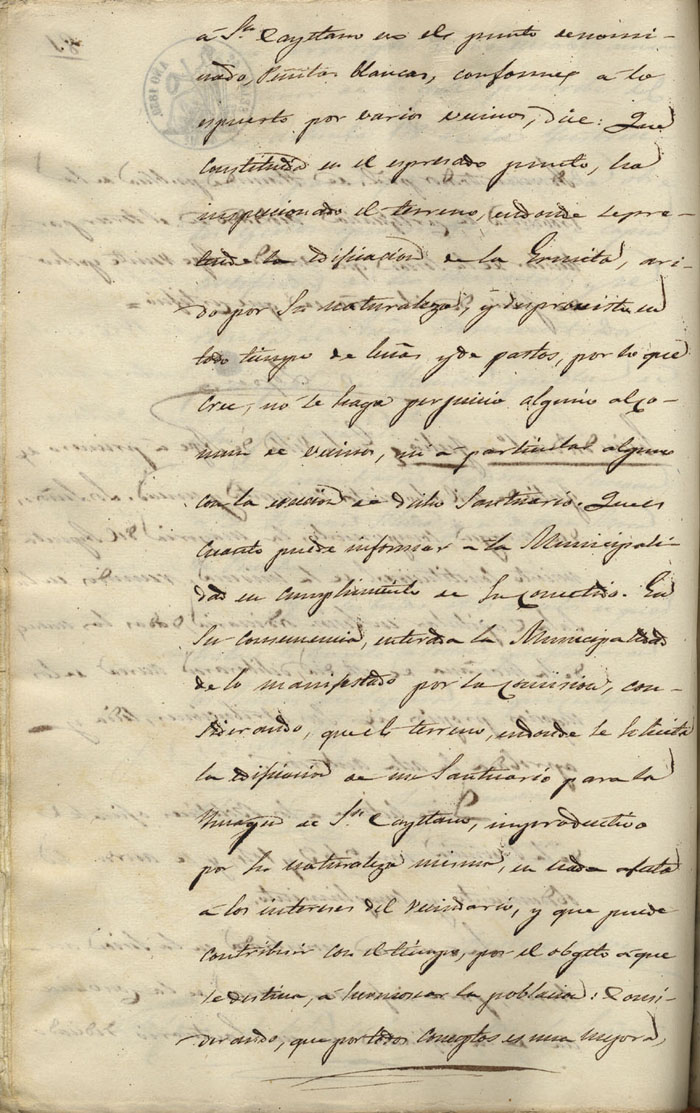 á Sn Cayetano en el punto denomi-
nado, Peñitas blancas, conforme á lo
espuesto por varios vecinos, dice: Que
constituida en el espresado punto, ha
inspeccionado el terreno, endonde sepre-
tende la edificacion de la Ermita, ari-
do por Su naturaleza, y desprovisto en
todo tiempo de leñas y de pastos, por lo que
cree, no se haga perjuicio alguno al co-
mun de vecinos, ni a particular alguno
con la ereccion de dicho Santuario. Que es
cuanto puede informar a la Municipali-
dad en cumplimiento de Su cometido. En
Su consecuencia, enterada la Municipalidad
de lo manifestado por la Comision, con-
siderando, que el terreno, endonde se solicita
la edificacion de un Santuario para la
Imagen de Sn Cayetano, improductivo
por su naturaleza misma, en nada afecta
á los intereses del vecindario, y que puede
contribuir con el tiempo, por el objeto á que
se destina, á hermosear la poblacion: Consi-
derando, que por todos conceptos es una mejora,